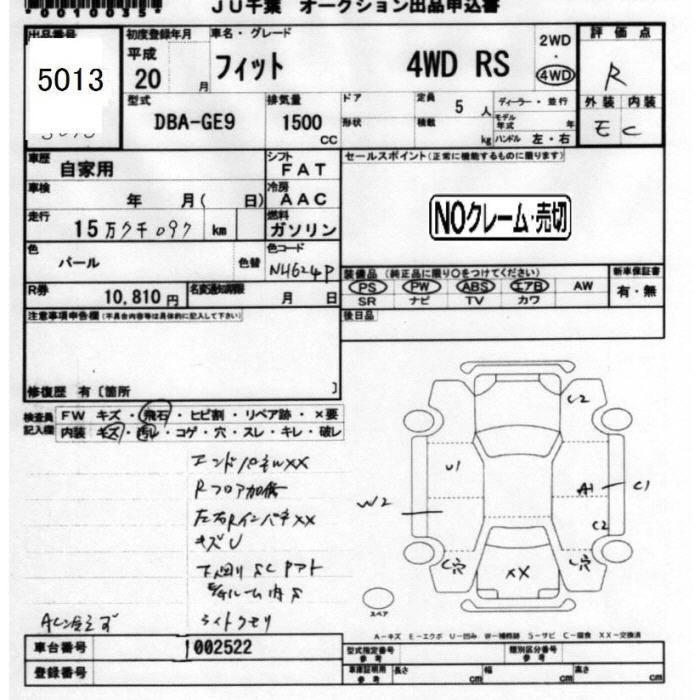 *0010035*
JU千葉 オークション出品申込書
出品番号
5013
初度登録年月
平成
20 月
車名・グレード
フィット 4WD RS
2WD
・
4WD
評価点
R
外装 内装
E C
型式
DBA-GE9
排気量
1500
cc
ドア
形状
定員 5 人
積載 kg
ディーラー・並行
モデル年式 年
ハンドル 左・右
車歴
自家用
シフト
FAT
セールスポイント(正常に機能するものに限ります)
車検
年 月( 日)
冷房
AAC
走行
15万クチ097 km
燃料
ガソリン
NOクレーム・売切
色
パール
色替
色コード
NH624P
装備品(純正品に限り○をつけてください)
新車保証書
PS PW ABS エアB AW
SR ナビ TV カワ
有・無
R券
10,810円
名変通知期限
月 日
後日品
注意事項申告欄(不具合内容等は具体的に記入して下さい)
修復歴 有〔箇所 〕
検査員
記入欄
FW キズ・飛石・ヒビ割・リペア跡・×要
内装 キズ・汚レ・コゲ・穴・スレ・キレ・破レ
エンドパネルXX
Rフロア加修
左右RインパネXX
キズU
下回りSCPアト
ライトクモリ
C2
U1
A1
C1
W2
C2
C穴
XX
C穴
スペア
A-キズ E-エクボ U-凹み W-補修跡 S-サビ C-腐食 XX-交換済
車台番号
002522
登録番号
型式指定番号
参考
類別区分番号
参考
車庫証明用
参考
長さ cm
幅 cm
高さ cm